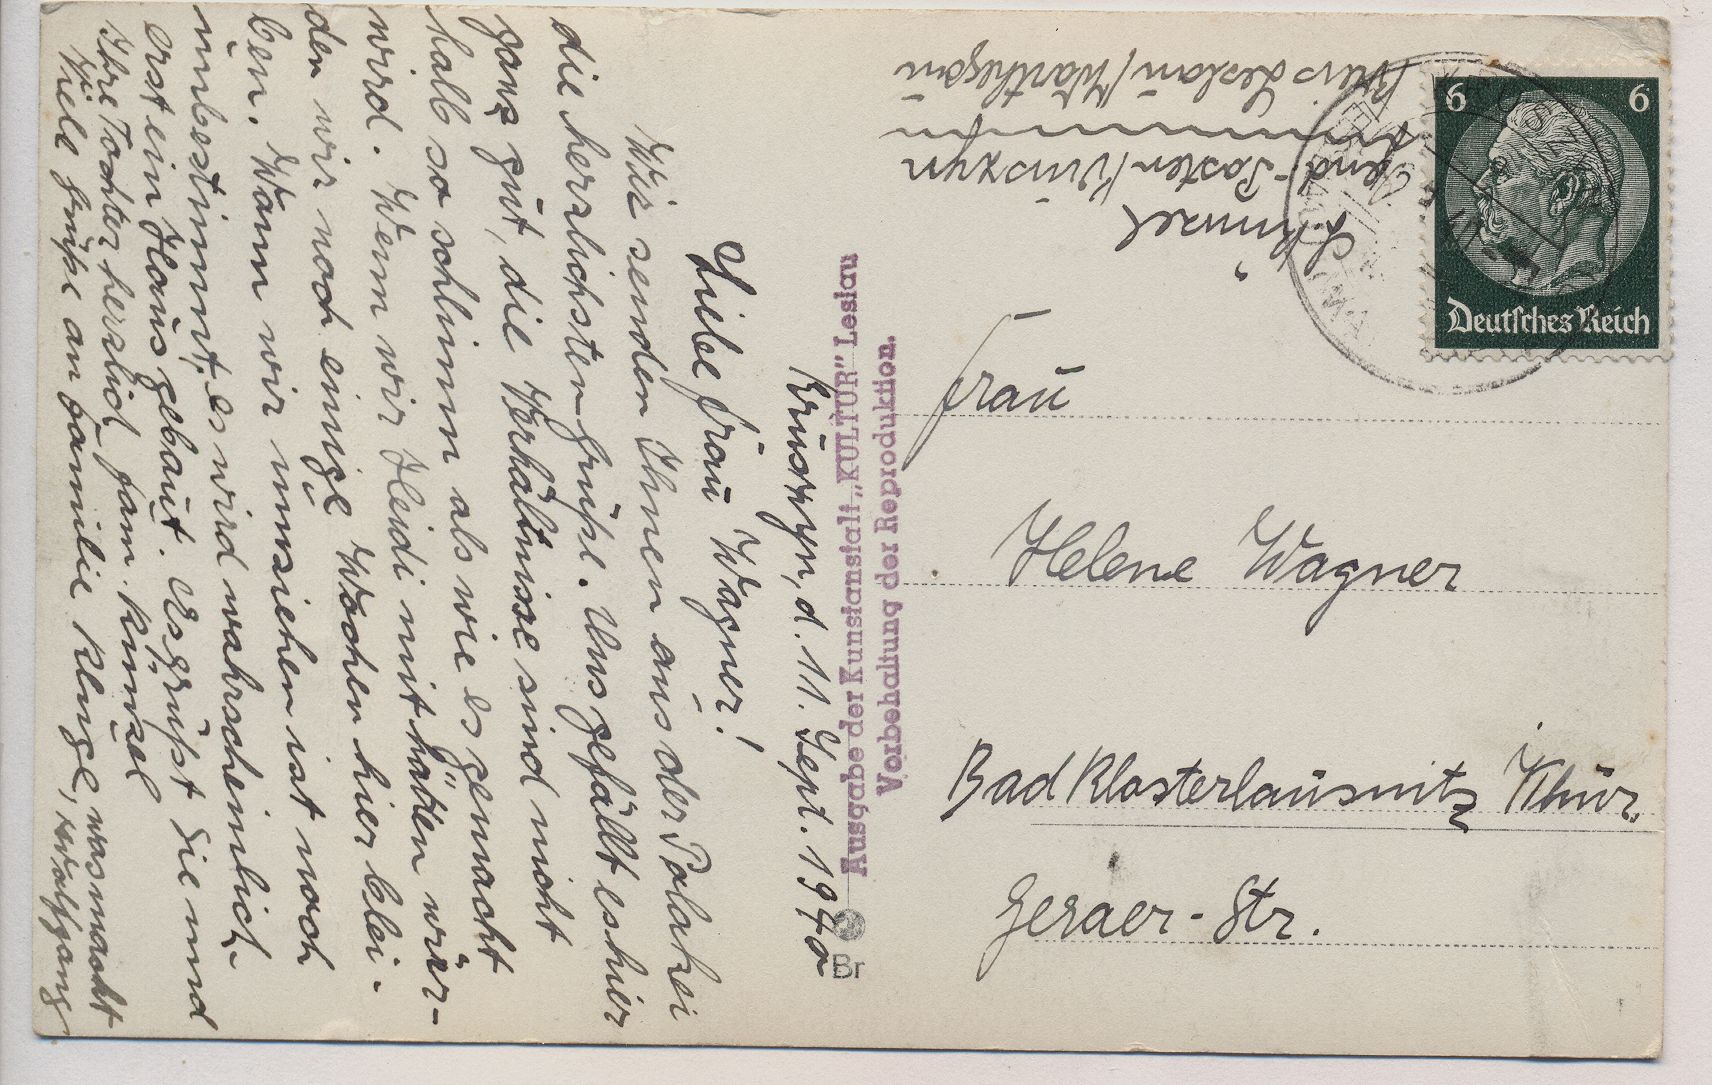 Kruszyn, d. 11. Sept. 1940
Liebe Frau Wagner!
Wir senden Ihnen aus der Polakei
die herzlichsten Grüße. Uns gefällt es hier
ganz gut, die Verhältnisse sind nicht
halb so schlimm als wie es gemacht
wird. Wenn wir Heidi mit hätten wür-
den wir noch einige Wochen hier blei-
ben. Wann wir umziehen ist noch
unbestimmt, es wird wahrscheinlich
erst ein Haus gebaut. Es grüßt Sie und
Ihre Tochter herzlich Fam. Künzel
Viele Grüße an Familie Klinge, was macht
Wolfgang
Ausgabe der Kunstanstalt „KULTUR" Leslau
Vorbehaltung der Reproduktion.
Br
Künzel
Gend.-Posten Kruszyn
Kreis Leslau/Warthegau
6 6
Deutsches Reich
Frau
Helene Wagner
Bad Klosterlausnitz Thür.
Geraer-Str.